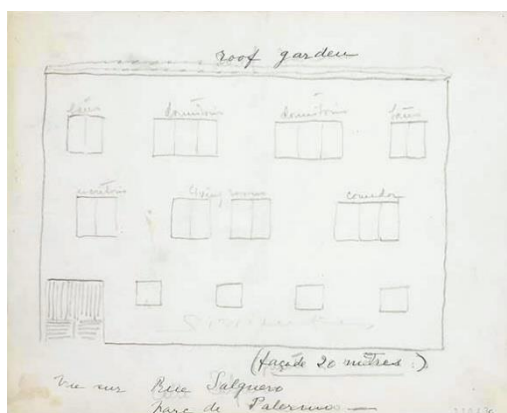 roof garden
baño dormitorio dormitorio baño
escritorio living room comedor
(façade 20 mètres :)
Vue sur Rue Salguero
Parc de Palermo —